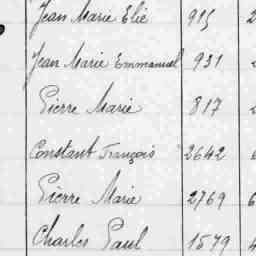 Jean Marie Elie 915 2
Jean Marie Emmanuel 931
Pierre Marie 817
Constant François 2642 6
Pierre Marie 2769 6
Charles Paul 1579 4